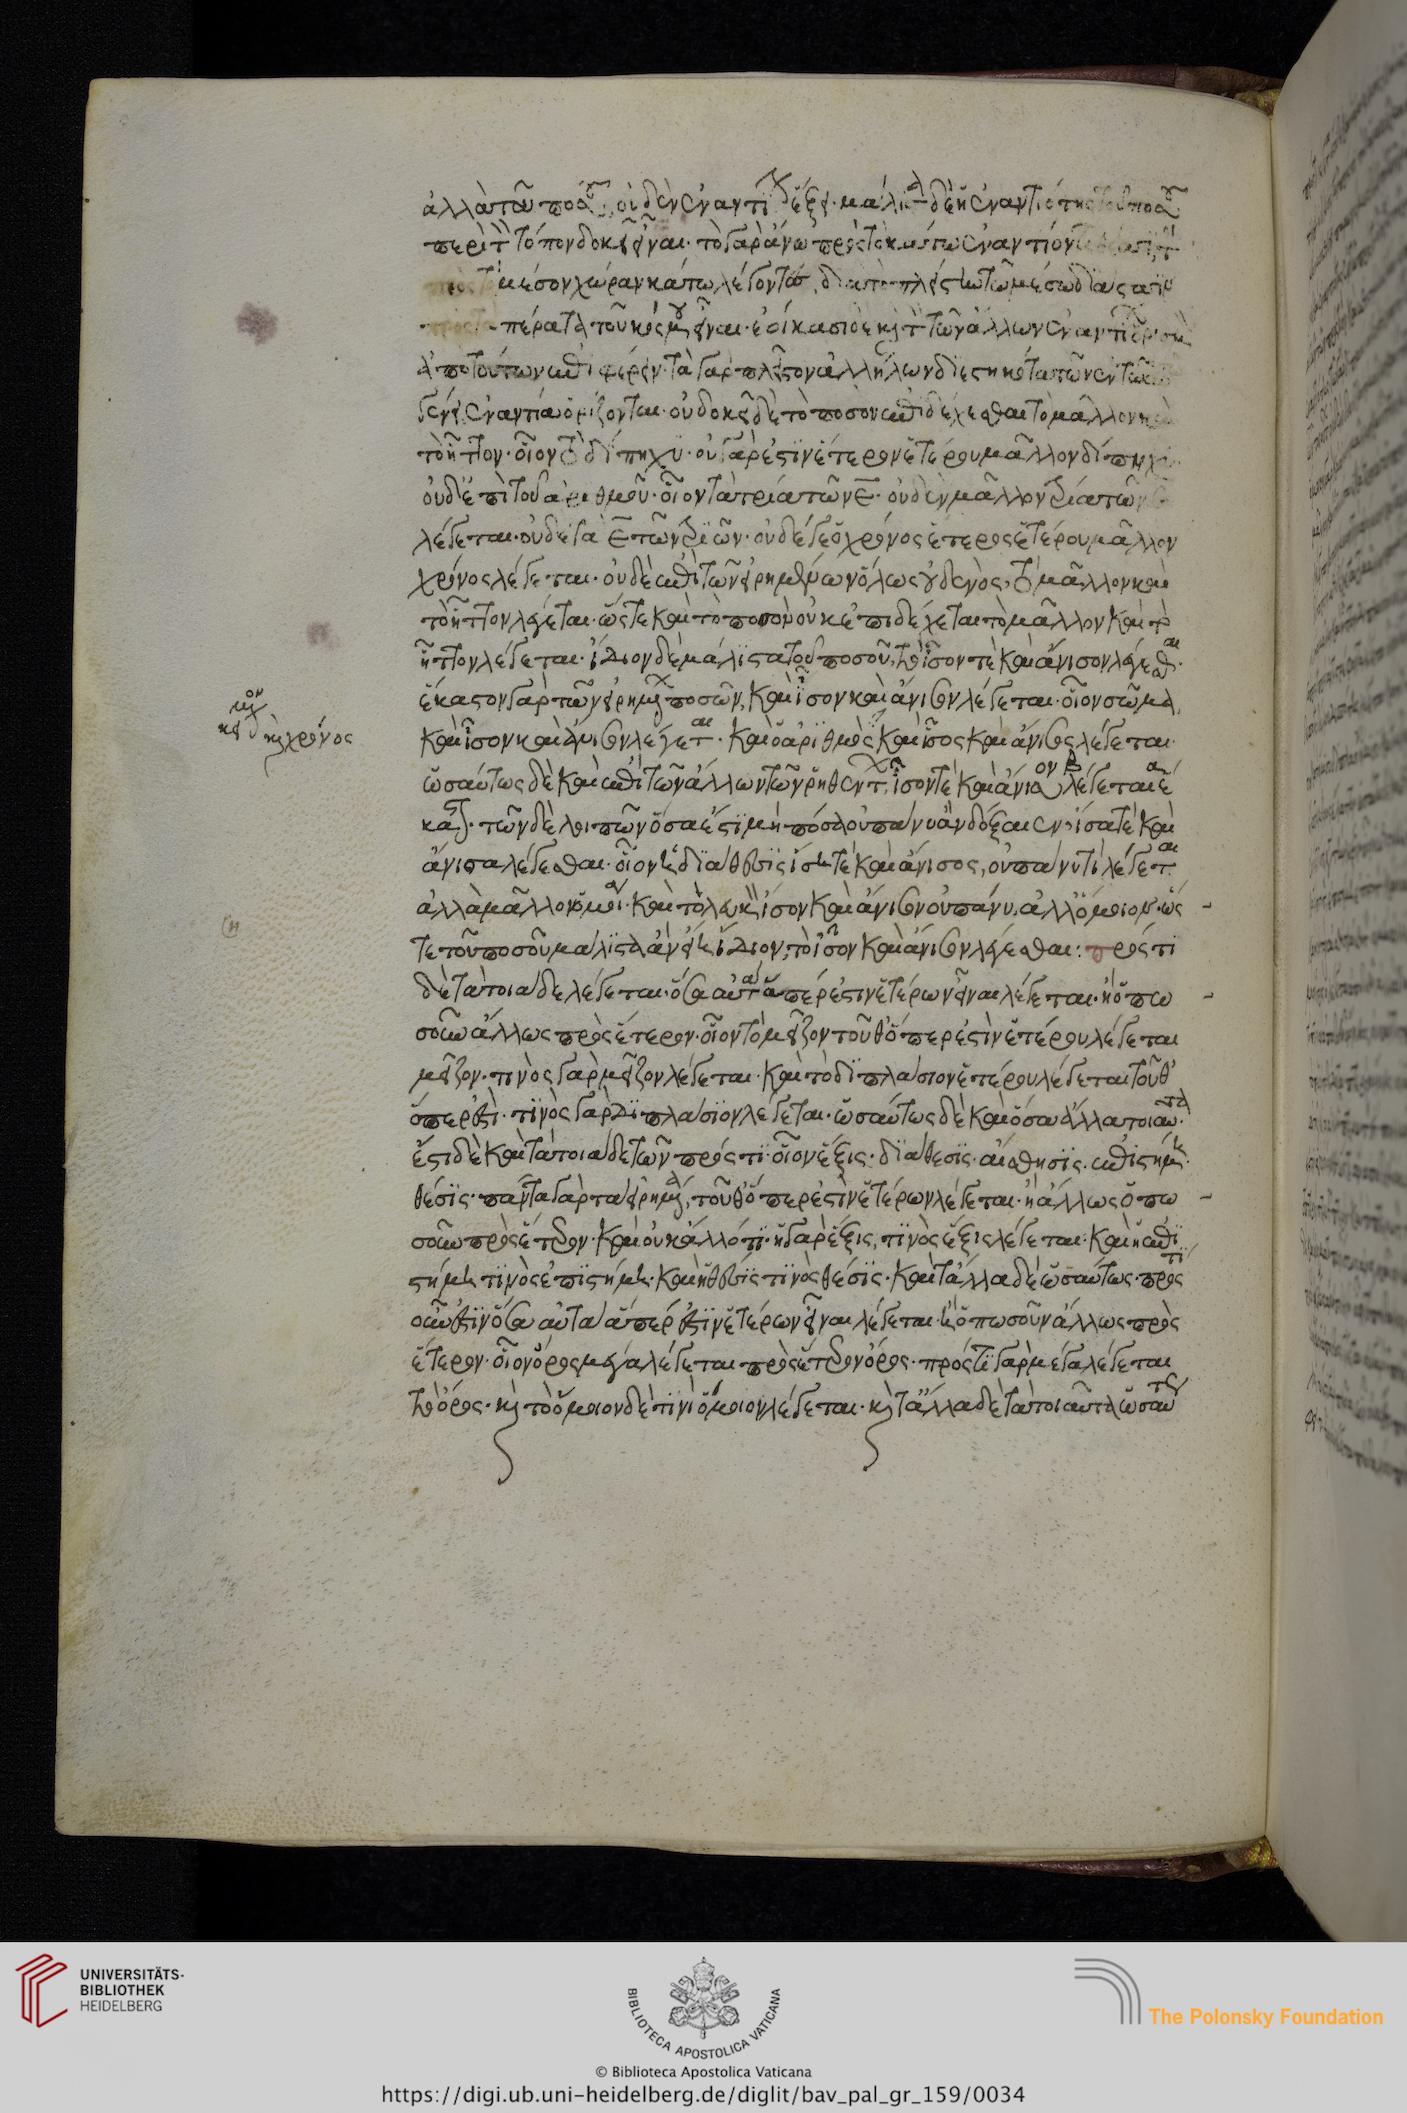 περὶ τὸν τόπον δοκεῖ εἶναι. τὸ γὰρ ἄνω πρὸς τὸ κάτω ἐναντίον
μέσον χώραν κάτω λέγοντες, διὰ τὸ πλείστην τῷ μέσῳ διάστασιν
πέρατα τοῦ κόσμου εἶναι. ἐοίκασι δὲ καὶ τὸν τῶν ἄλλων ἐναντίων ὁρισμὸν
ἀπὸ τούτων ἐπιφέρειν. τὰ γὰρ πλεῖστον ἀλλήλων διεστηκότα τῶν ἐν τῷ αὐτῷ
γένει ἐναντία ὁρίζονται. οὐ δοκεῖ δὲ τὸ ποσὸν ἐπιδέχεσθαι τὸ μᾶλλον καὶ
τὸ ἧττον. οἷον τὸ δίπηχυ. οὐ γάρ ἐστιν ἕτερον ἑτέρου μᾶλλον δίπηχυ
οὐδ' ἐπὶ τοῦ ἀριθμοῦ. οἷον τὰ τρία τῶν ε. οὐδὲν μᾶλλον τρία τῶν
λέγεται. οὐδὲ τὰ ε τῶν τριῶν. οὐδέ γε ὁ χρόνος ἕτερος ἑτέρου μᾶλλον
χρόνος λέγεται. οὐδὲ ἐπὶ τῶν εἰρημένων ὅλως οὐδενὸς, τὸ μᾶλλον καὶ
τὸ ἧττον λέγεται. ὥστε καὶ τὸ ποσὸν οὐκ ἐπιδέχεται τὸ μᾶλλον καὶ τὸ
ἧττον λέγεται. ἴδιον δὲ μάλιστα τοῦ ποσοῦ, τὸ ἴσον τὲ καὶ ἄνισον λέγεσθαι.
ἕκαστον γὰρ τῶν εἰρημένων ποσῶν, καὶ ἴσον καὶ ἄνισον λέγεται. οἷον σῶμα,
καὶ ἴσον καὶ ἄνισον λέγεται. καὶ ὁ ἀριθμὸς καὶ ἴσος καὶ ἄνισος λέγεται.
καὶ χρόνος
ὡσαύτως δὲ καὶ ἐπὶ τῶν ἄλλων τῶν ῥηθέντων ἴσον τὲ καὶ ἄνισον λέγεται ἕ
καστον. τῶν δὲ λοιπῶν ὅσα ἐστὶ μὴ ποσὰ οὐ πάνυ ἂν δόξαιεν ἴσα τὲ καὶ
ἄνισα λέγεσθαι. οἷον ἡ διάθεσις ἴση τὲ καὶ ἄνισος, οὐ πάνυ τι λέγεται
ἀλλὰ μᾶλλον ὁμοία. καὶ τὸ λευκὸν ἴσον καὶ ἄνισον οὐ πάνυ, ἀλλ' ὅμοιον. ὥς
τε τοῦ ποσοῦ μάλιστα ἂν εἴη ἴδιον, τὸ ἴσον καὶ ἄνισον λέγεσθαι: πρός τι
δὲ τὰ τοιάδε λέγεται. ὅσα αὐτὰ ἅπερ ἐστὶν ἑτέρων εἶναι λέγεται. ἢ ὅπω
σοῦν ἄλλως πρὸς ἕτερον. οἷον τὸ μεῖζον τοῦθ' ὅπερ ἐστὶν ἑτέρου λέγεται
μεῖζον. τινὸς γὰρ μεῖζον λέγεται. καὶ τὸ διπλάσιον ἑτέρου λέγεται τοῦθ'
ὅπερ ἐστὶ. τινὸς γὰρ διπλάσιον λέγεται. ὡσαύτως δὲ καὶ ὅσα ἄλλα τοιαῦτα.
ἔστι δὲ καὶ τὰ τοιάδε τῶν πρός τι. οἷον ἕξις. διάθεσις. αἴσθησις. ἐπιστήμη.
θέσις. πάντα γὰρ τὰ εἰρημένα, τοῦθ' ὅπερ ἐστὶν ἑτέρων λέγεται. ἢ ἄλλως ὅπω
σοῦν πρὸς ἕτερον. καὶ οὐκ ἄλλό τι. ἡ γὰρ ἕξις, τινὸς ἕξις λέγεται. καὶ ἡ ἐπι
στήμη τινὸς ἐπιστήμη. καὶ ἡ θέσις τινὸς θέσις. καὶ τἄλλα δὲ ὡσαύτως. πρός τι
οὖν ἐστὶν ὅσα αὐτὰ ἅπερ ἐστὶν ἑτέρων εἶναι λέγεται. ἢ ὁπωσοῦν ἄλλως πρὸς
ἕτερον. οἷον ὄρος μέγα λέγεται πρὸς ἕτερον ὄρος. πρός τι γὰρ μέγα λέγεται
τὸ ὄρος. καὶ τὸ ὅμοιον δὲ τινὶ ὅμοιον λέγεται. καὶ τἄλλα δὲ τὰ τοιαῦτα ὡσαύτως
UNIVERSITÄTS-
BIBLIOTHEK
HEIDELBERG
BIBLIOTECA APOSTOLICA VATICANA
© Biblioteca Apostolica Vaticana
The Polonsky Foundation
https://digi.ub.uni-heidelberg.de/diglit/bav_pal_gr_159/0034